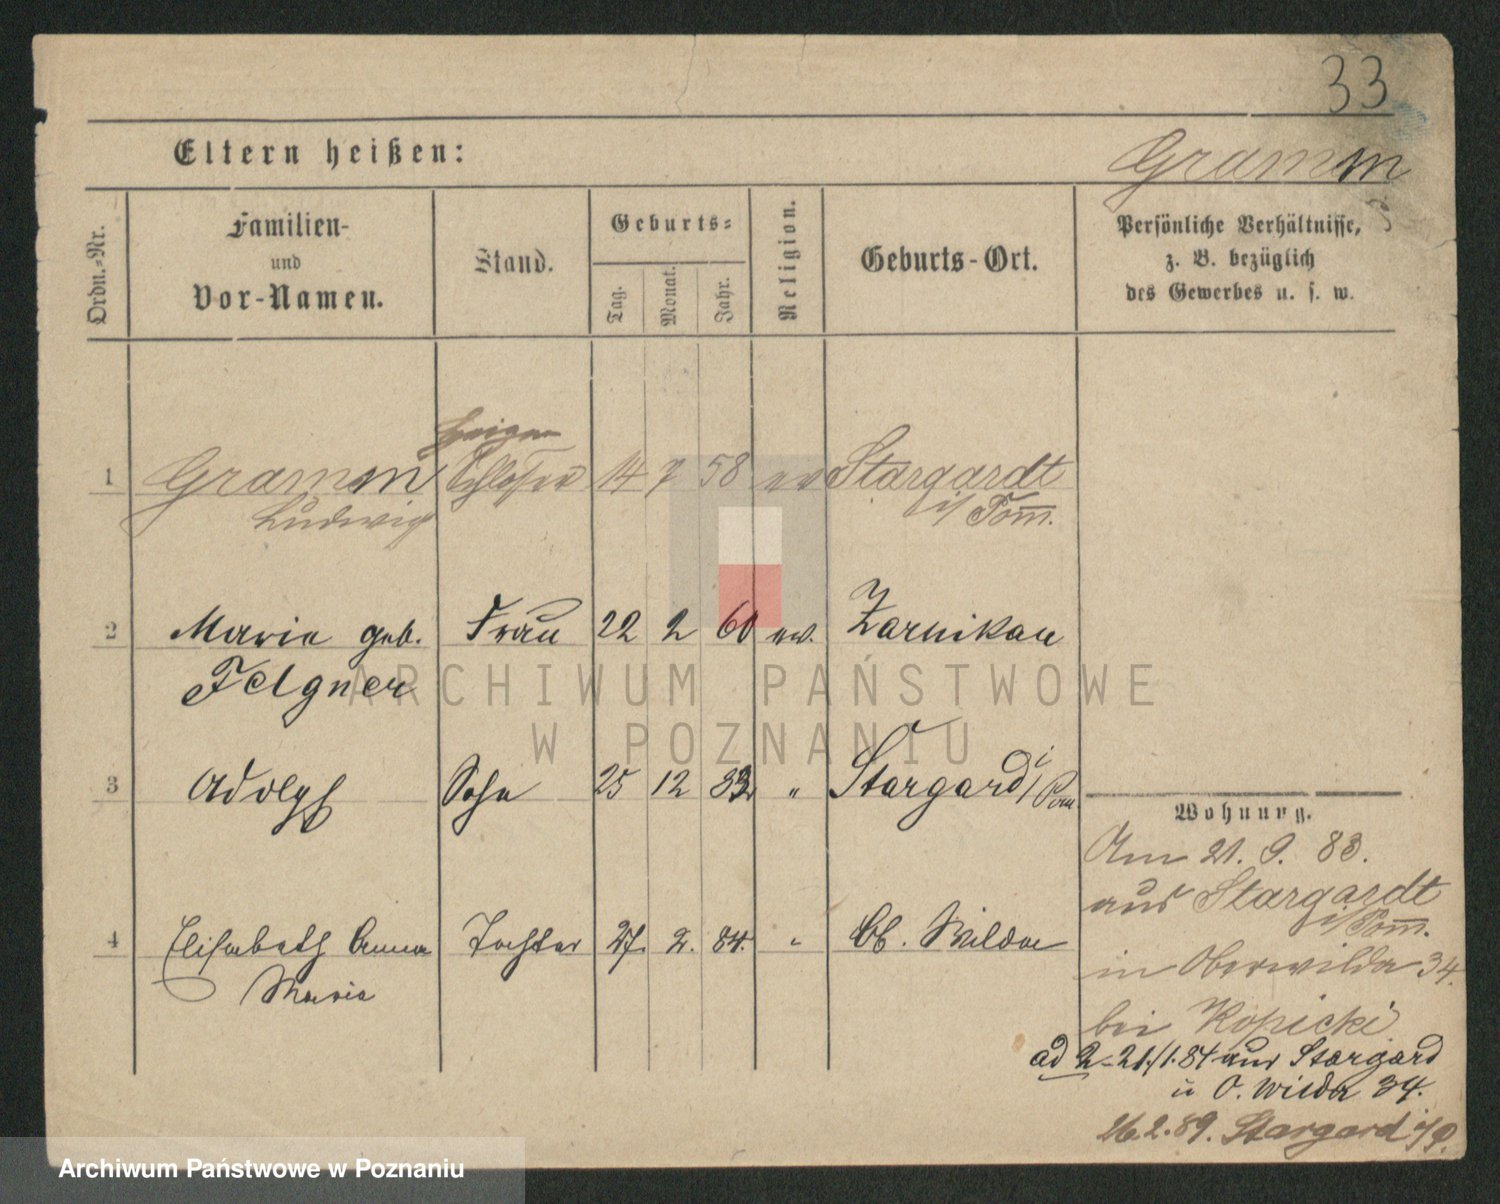 33
Eltern heißen:
Gramm
Ordn.-Nr.
Familien-
und
Vor-Namen.
Stand.
Geburts-
Tag.
Monat.
Jahr.
Religion.
Geburts-Ort.
Persönliche Verhältnisse,
z. B. bezüglich
des Gewerbes u. s. w.
1 Gramm Schlosser 14 7 58 ev Stargardt
Ludwig i/Pom.
2 Marie geb. Frau 22 2 60 ev. Zarnikau
Felgner
3 Adolph Sohn 25 12 83 " Stargard i/Pom
4 Elisabeth Anna Tochter 27. 2. 84. " Ob. Wilda
Maria
Wohnung.
Am 21. 9. 83.
aus Stargardt
i/Pom.
in Oberwilda 34.
bei Kopicki
ad 2 - 21./1.84 aus Stargard
u O. Wilda 34.
26.2.89. Stargard i/P.
ARCHIWUM PAŃSTWOWE
W POZNANIU
Archiwum Państwowe w Poznaniu